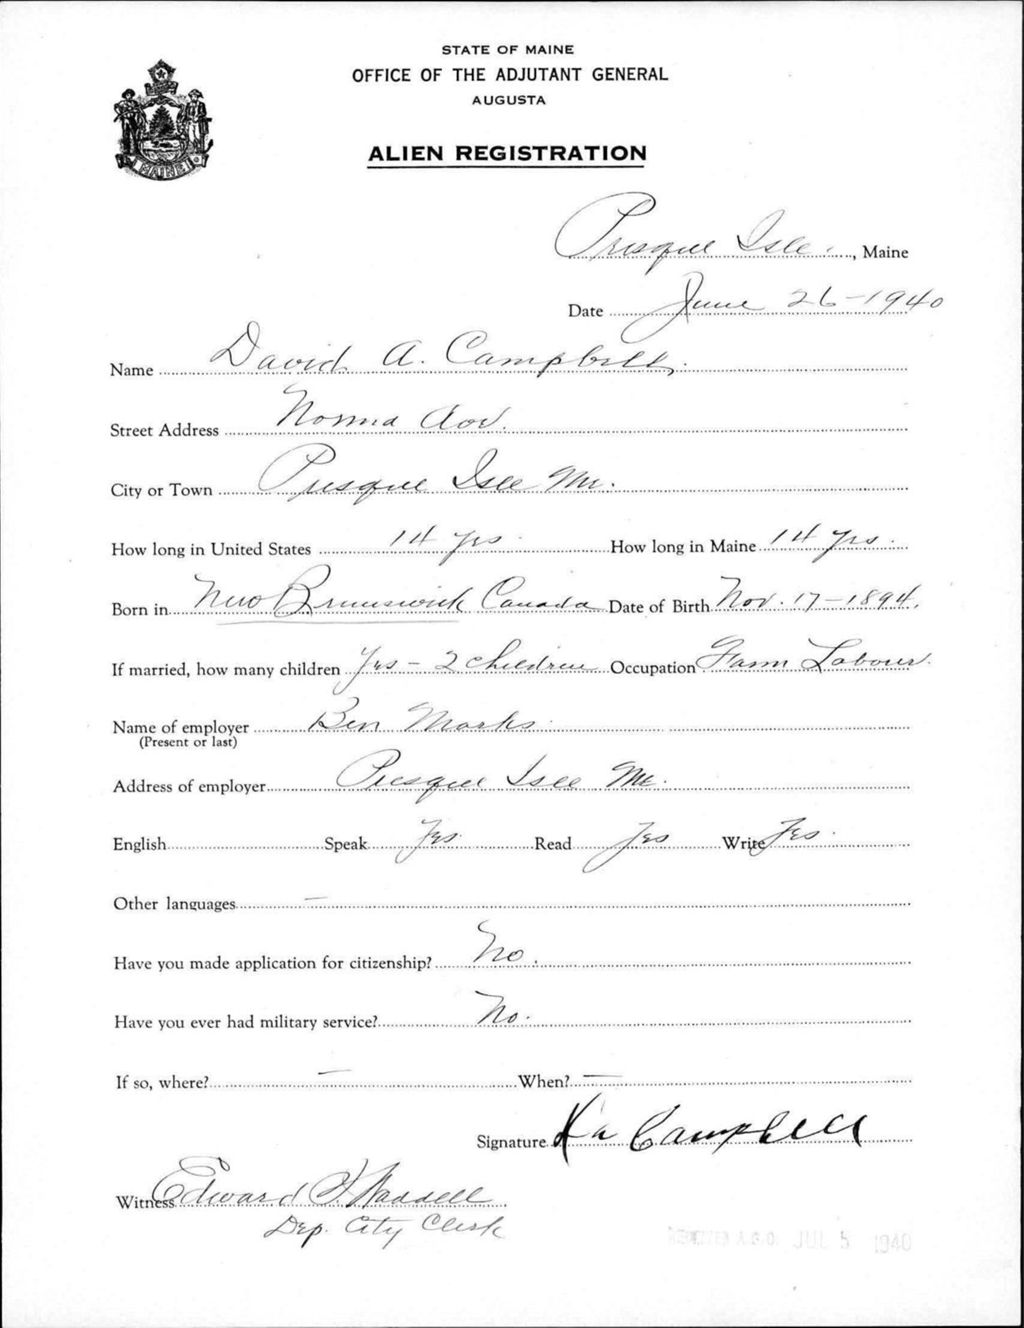 STATE OF MAINE
OFFICE OF THE ADJUTANT GENERAL
AUGUSTA
ALIEN REGISTRATION
MAINE
Presque Isle, Maine
Date June 26-1940
Name David A. Campbell
Street Address
City or Town Presque Isle Me.
How long in United States 14 yrs How long in Maine 14 yrs.
Born in New Brunswick Canada Date of Birth Nov. 17-1894.
If married, how many children Yes - 2 children Occupation Farm Labour.
Name of employer Ben Marks
(Present or last)
Address of employer Presque Isle Me.
English Speak Yes Read Yes Write Yes.
Other languages —
Have you made application for citizenship? No.
Have you ever had military service? No.
If so, where? — When? —
Signature Campbell
Witness Edward Waddell
Dep. City Clerk
RECEIVED A.G.O. JUL 5 1940